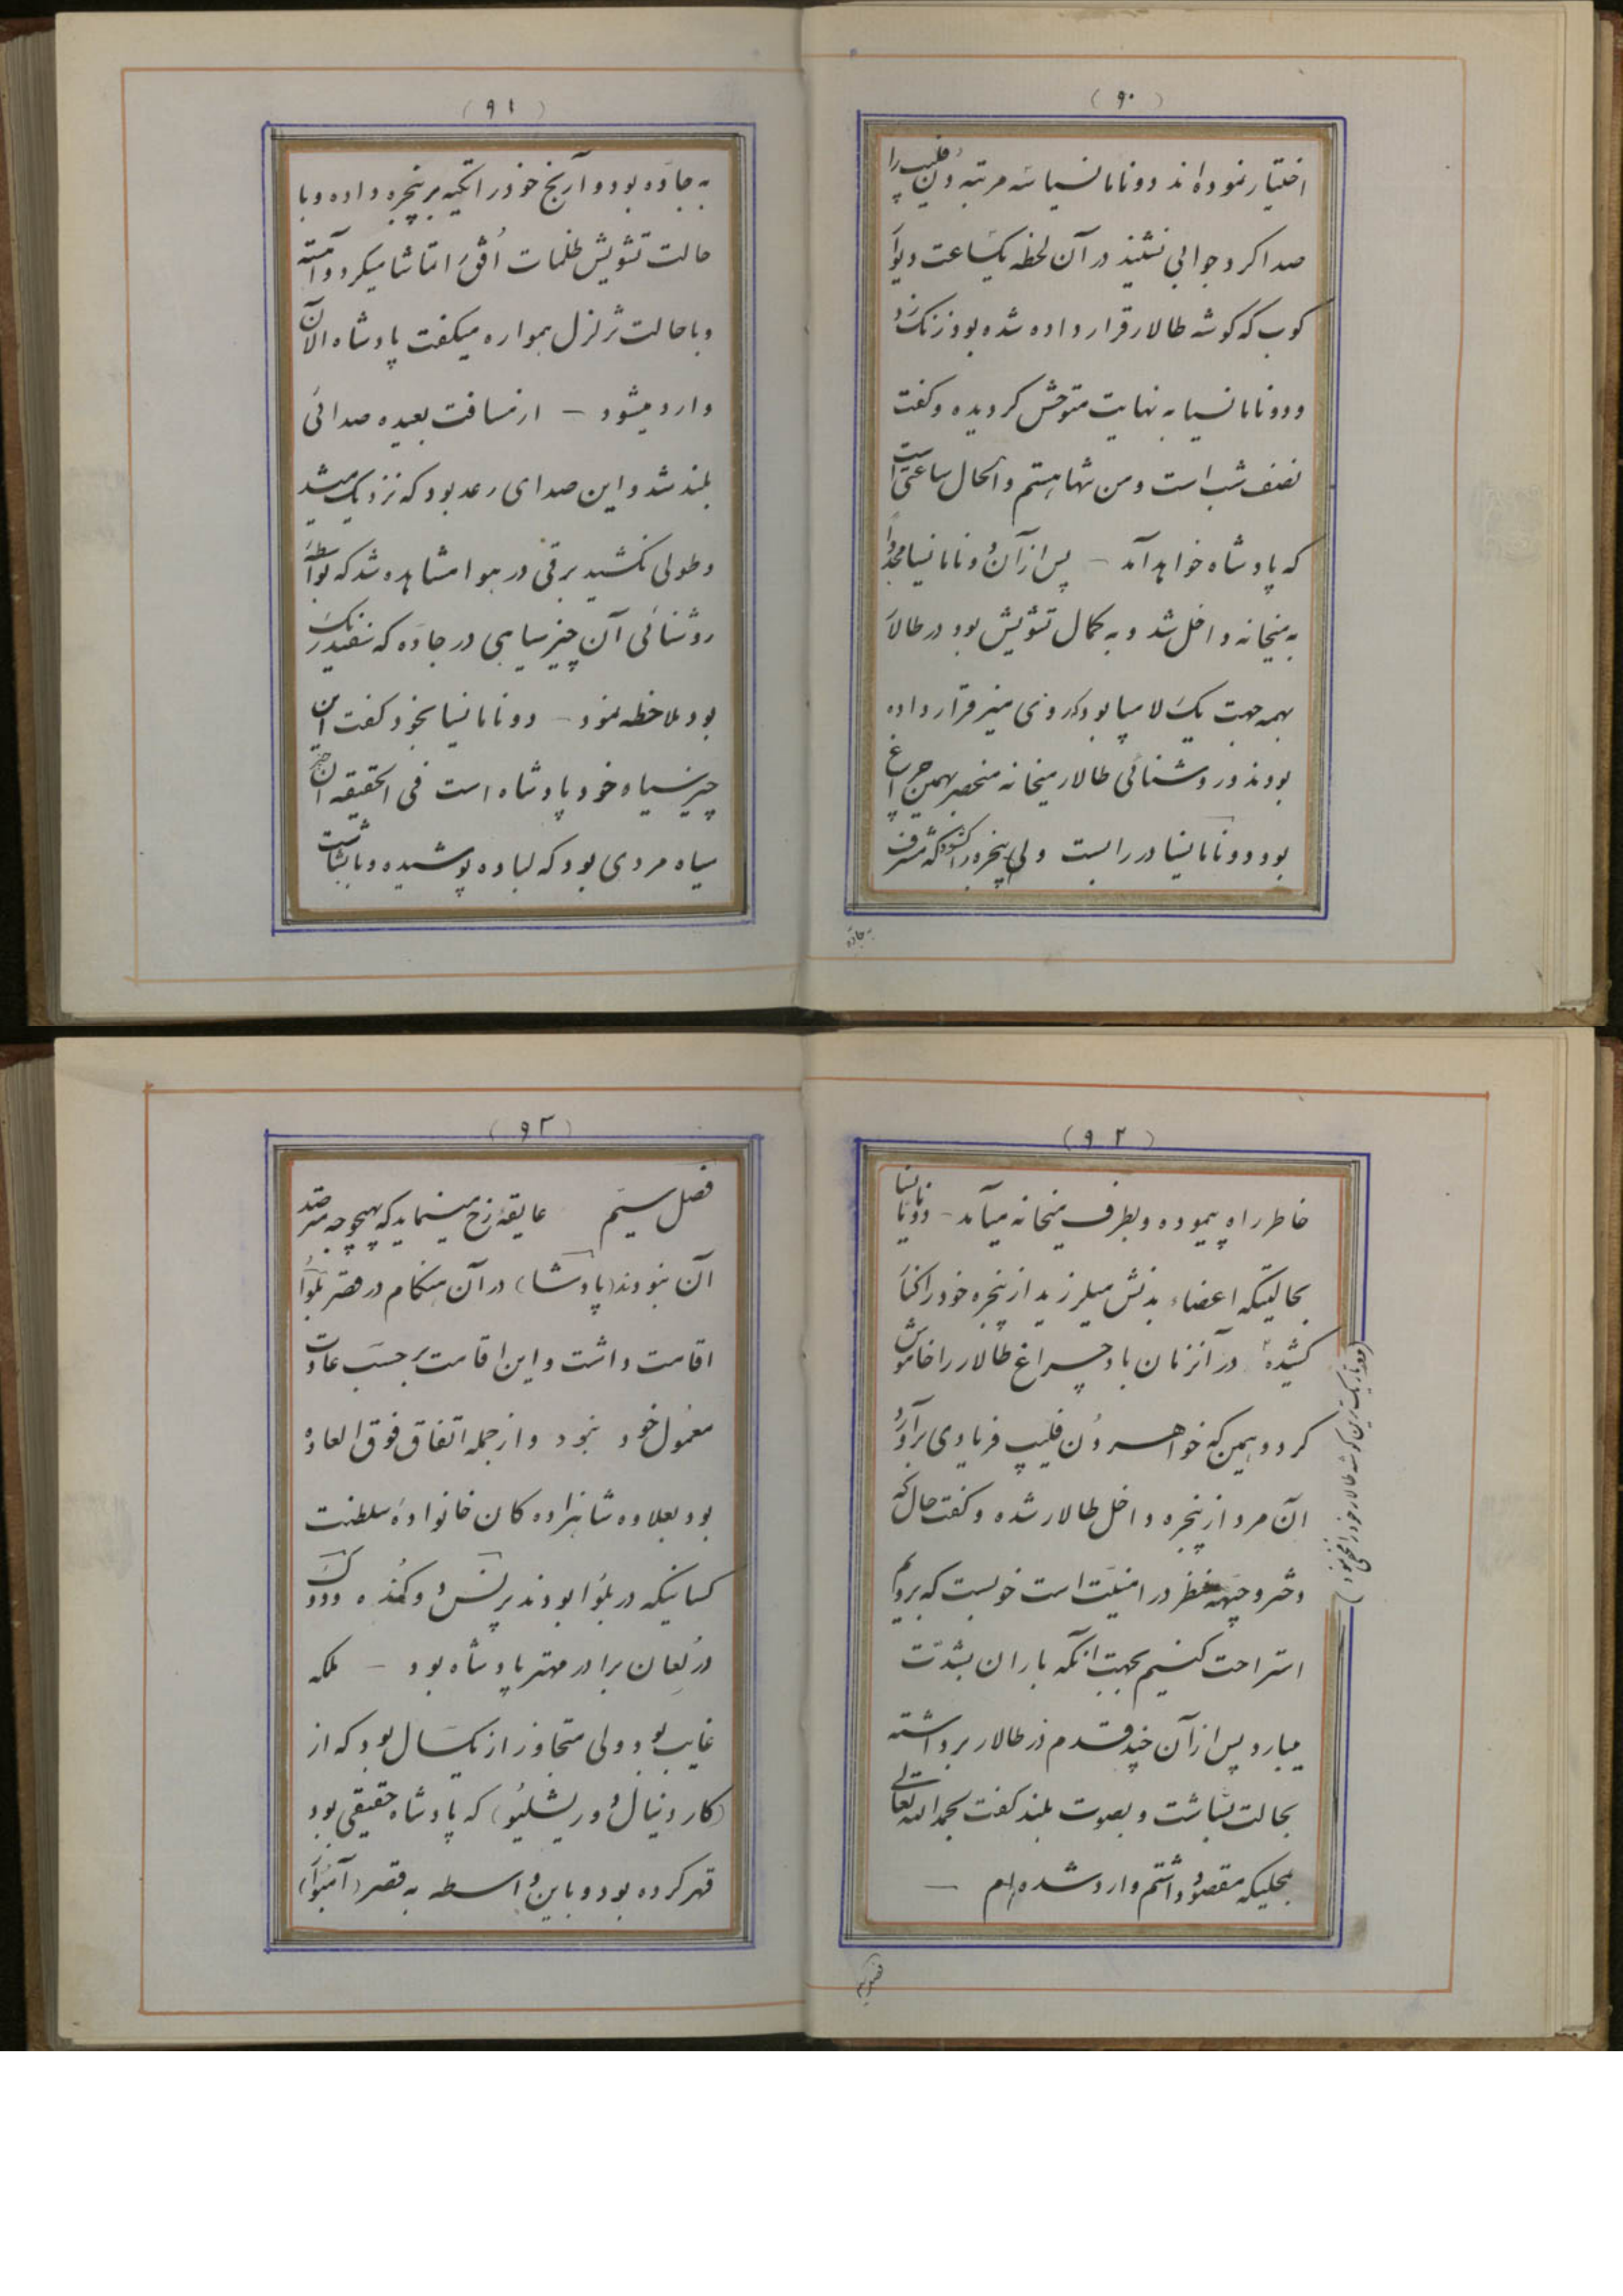 (۹۰)
اختیار نموده‌اند دونامانسیا سه مرتبه دُن فلیپ را
صدا کرد جوابی نشنید در آن لحظه یکساعت دیوار
کوب که گوشه طالار قرار داده شده بود زنگ زد
دونامانسیا به نهایت متوحش گردیده و گفت
نصف شب است و من تنها هستم و الحال ساعتی است
که پادشاه خواهد آمد – پس از آن دونامانسیا مجدداً
به میخانه داخل شد و به کمال تشویش بود در طالار
بهمه جهت یک لامپا بود که روی میز قرار داده
بودند و روشنائی طالار میخانه منحصر بهمین چراغ
بود دونامانسیا در را بست ولی پنجره را گشود که مشرف
به جاده
(۹۱)
به جاده بود و آرنج خود را تکیه بر پنجره داده و با
حالت تشویش ظلمات اُفق را تماشا میکرد و آهسته
و با حالت تزلزل همواره میگفت پادشاه الآن
وارد میشود – از مسافت بعیده صدائی
بلند شد و این صدای رعد بود که نزدیک میشد
و طولی نکشید برقی در هوا مشاهده شد که بواسطه
روشنائی آن چیز سیاهی در جاده که سفید رنگ
بود ملاحظه نمود – دونامانسیا بخود گفت این
چیز سیاه خود پادشاه است فی الحقیقه آن چیز
سیاه مردی بود که لباده پوشیده و با بشاشت
(۹۲)
خاطر راه پیموده و بطرف میخانه میآمد – دونامانسیا
بحالتیکه اعضاء بدنش میلرزید از پنجره خود را کنار
کشیده در آنزمان باد چراغ طالار را خاموش
کرد و همین که خواهر دُن فلیپ فریادی برآورد
آن مرد از پنجره داخل طالار شده و گفت حال که
دختر و جبهه خطر در امنیت است خوبست که برویم
استراحت کنیم بجهت آنکه باران بشدّت
میبارد پس از آن چند قدم در طالار برداشته
بحالت بشاشت و بصوت بلند گفت بحمدالله تعالی
بمحلیکه مقصود داشتم وارد شده‌ام –
(و در تاریک‌ترین گوشه طالار خود را مخفی نمود)
(۹۳)
فصل سیّم عایقهٔ رخ مینماید که بهیچوجه مترصد
آن نبودند (پادشاه) در آن هنگام در قصر بلوا
اقامت داشت و این اقامت بر حسب عادت
معمول خود نبود و از جمله اتفاق فوق العاده
بود بعلاوه شاهزاده‌گان خانوادهٔ سلطنت
کسانیکه در بلوا بودند پرنس دو کنده و دوک
دُرلعان برادر مهتر پادشاه بود – ملکه
غایب بود ولی متجاوز از یکسال بود که از
(کاردینال دو ریشلیو) که پادشاه حقیقی بود
قهر کرده بود و باین واسطه به قصر (آمبوآ)